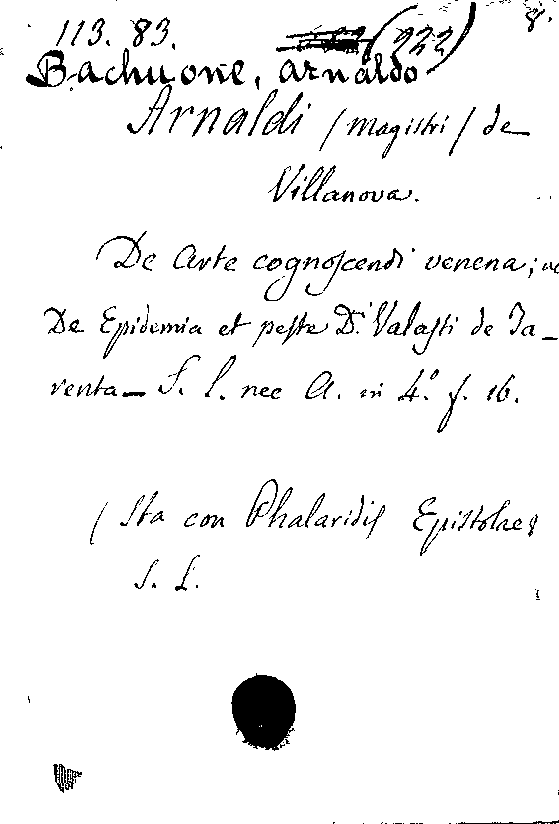 113. 83. (222) 8.
Bachuone, arnaldo
Arnaldi / Magistri / de
Villanova.
De Arte cognoscendi venena;
De Epidemia et peste D. Valasti de Ta-
renta_ S. l. nec A. in 4.º f. 16.
( Sta con Phalaridis Epistolae
S. L.